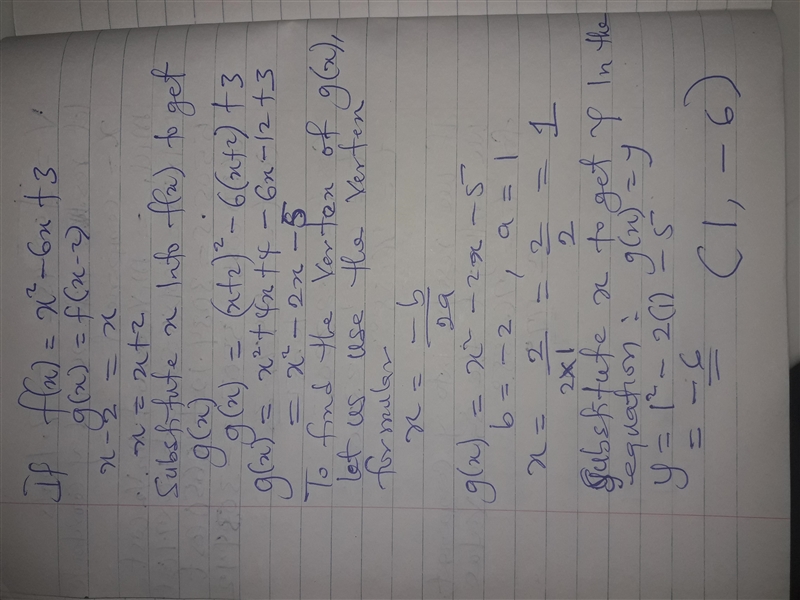 If f(x) = x² - 6x + 3
g(x) = f(x-2)
x-2 = x
x = x+2
Substitute x Into f(x) to get
g(x)
g(x) = (x+2)² - 6(x+2) + 3
g(x) = x² + 4x + 4 - 6x - 12 + 3
= x² - 2x - 5
To find the Vertex of g(x),
let us use the Vertex
formular
x = -b/2a
g(x) = x² - 2x - 5
b = -2, a = 1
x = 2/2x1 = 2/2 = 1
Substitute x to get y In the
equation: g(x) = y
y = 1² - 2(1) - 5
= -6
(1, -6)